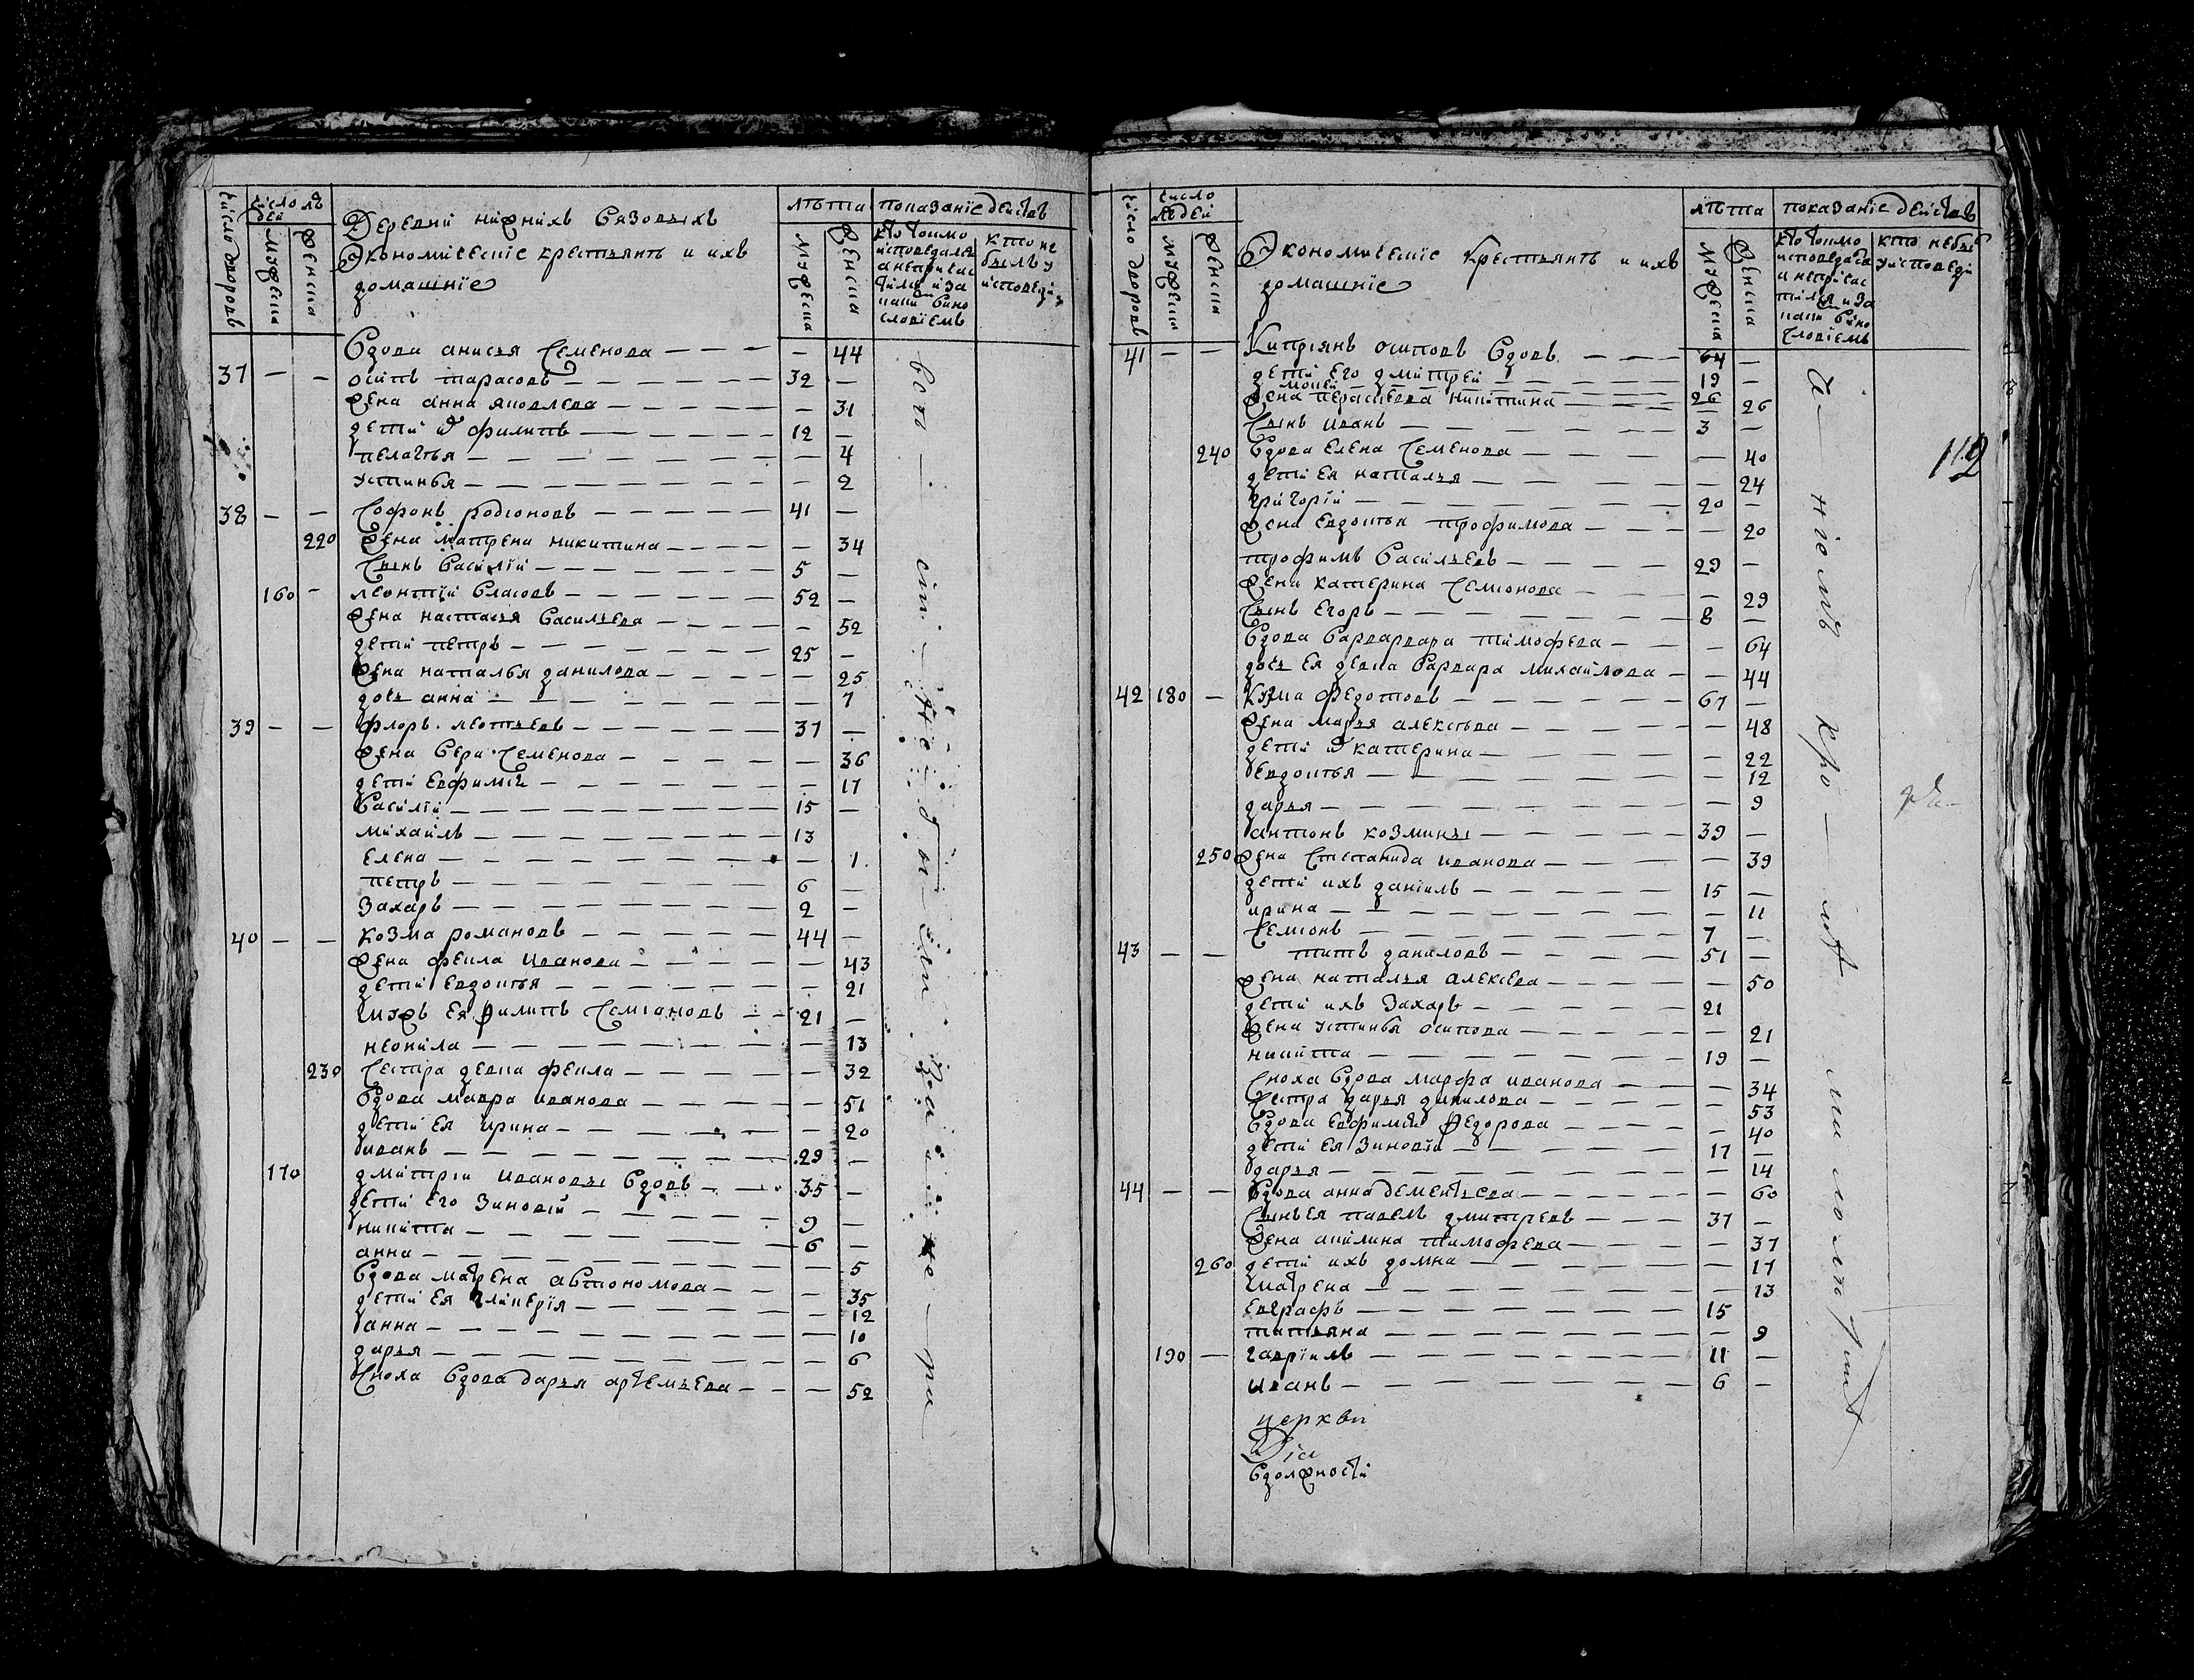 число дворовъ
число людей
мужеска
женска
Деревни нижнихъ Вязовыхъ
Экономическіе крестьянъ и ихъ
домашніе
лѣта
мужеска
женска
показаніе действъ
кто токмо
исповедался
а не причас
тился и за
каки вино
словіемъ
кто не
былъ у
исповеди
Вдова анисья Семенова — — — — 44
37 — — осипъ тарасовъ — — — — 32 —
жена анна яковлева — — — — — 31
дети ѿ филипъ — — — — 12 —
пелагъя — — — — — — 4
устинья — — — — — — 2
38 — — Софонъ родіоновъ — — — — 41 —
220 жена матрена никитина — — — — — 34
Сынъ Василій — — — — 5 —
160 — леонтій Власовъ — — — — 52 —
жена настасья Васильева — — — — — 52
дети петръ — — — — 25 —
жена наталья данилова — — — — — 25
дочь анна — — — — 7
39 — — флоръ леотьевъ — — — — 37 —
жена Вера Семенова — — — — — 36
дети Евфимія — — — — — 17
Василій — — — — 15 —
михайлъ — — — — 13
Елена — — — — — 1
петръ — — — — 6 —
Захаръ — — — — 2 —
40 — — козма романовъ — — — — 44 —
жена фекла Иванова — — — — — 43
дети Евдокья — — — — — 21
мужъ Ея филипъ Семіоновъ — — 21 —
неонила — — — — — 13
230 Сестра девка фекла — — — — — 32
Вдова мавра иванова — — — — — 51
дети Ея ирина — — — — — 20
иванъ — — — — 29 —
170 дмитріи Ивановъ Вдовъ — — 35 —
дети Его Зиновій — — — — 9 —
никита — — — — 6 —
анна — — — — 5
Вдова матрена автономова — — — 35
дети Ея гликерія — — — — — 12
анна — — — — — 10
дарья — — — — — 6
Сноха Вдова дарья артемьева — — — 52
число дворовъ
число
людей
мужеска
женска
Экономическіе крестьянъ и ихъ
домашніе
лѣта
мужеска
женска
показаніе действъ
кто токмо
исповедался
и не причас
тился и за
каки вино
словіемъ
кто небылъ
уисповеди
112
41 — — Кипріянъ осиповъ Вдовъ — — — 64 —
дети Его дмитрей — — — — 19 —
мокей — — — — 26
жена перасковва никитина — — — — 26
Сынъ иванъ — — — — 3 —
240 Вдова Елена Семенова — — — — — 40
дети Ея наталья — — — — — 24
григорій — — — — 20 —
жена Евдокья трофимова — — — — 20
трофимъ Васильевъ — — — — 29 —
жена катерина Семіонова — — — — 29
Сынъ Егоръ — — — — 8 —
Вдова Варварвара тимофева — — — 64
дочь Ея девка Варвара михайлова — — 44
42 180 — Кузма федотовъ — — — — 67 —
жена марья алексеева — — — — — 48
дети ѿ катерина — — — — — 22
Евдокья — — — — — 12
дарья — — — — — 9
антонъ козминъ — — — — 39 —
250 жена Степанида иванова — — — — — 39
дети ихъ даніилъ — — — — 15 —
ирина — — — — — 11
Семіонъ — — — — 7 —
43 — — титъ даниловъ — — — — 51 —
жена наталья алексева — — — — — 50
дети ихъ Захаръ — — — — 21
жена устинья осипова — — — — — 21
никита — — — — 19 —
Сноха Вдова марфа иванова — — — 34
Сестра дарья данилова — — — — — 53
Вдова Евфимія федорова — — — — 40
дети Ея Зиновій — — — — 17 —
дарья — — — — — 14
44 — — Вдова анна дементьева — — — — — 60
Сынъ Ея павелъ дмитревъ — — — 37 —
жена акилина тимофева — — — — 37
260 дети ихъ домна — — — — — 17
матрена — — — — — 13
Евграфъ — — — — 15
татьяна — — — — — 9
190 — гавріилъ — — — — 11 —
иванъ — — — — 6 —
церкви
вдолжности